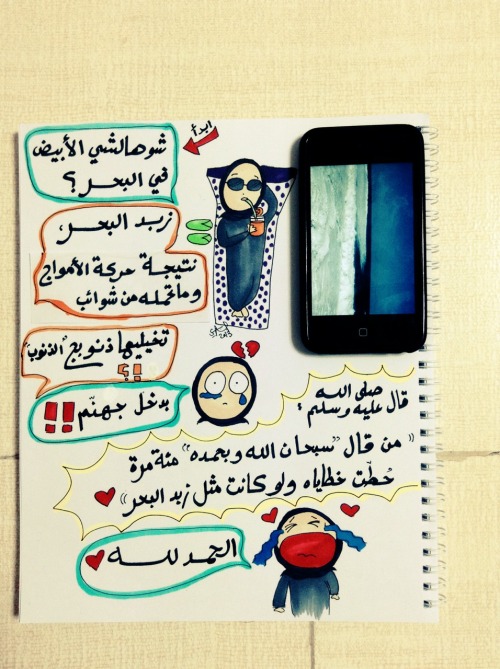 ابدأ
شو هالشي الأبيض
في البحر؟
زبد البحر،
نتيجة حركة الأمواج
وماتحمله من شوائب
تخيليها ذنوبج "الذنوب"
؟!
بدخل جهنّم !!
قال صلى الله
عليه وسلم:
"من قال "سبحان الله وبحمده" مئة مرة
حُطّت خطاياه ولو كانت مثل زبد البحر"
الحمدلله